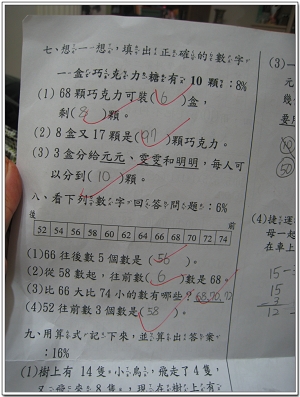 七、想一想，填出正確的數字
一盒巧克力糖有10顆：8%
(1) 68顆巧克力可裝( 6 )盒，
剩( 8 )顆。
(2) 8盒又17顆是( 97 )顆巧克力。
(3) 3盒分給元元、雯雯和明明，每人可
以分到( 10 )顆。
八、看下列數字回答問題：6%
後 前
52 54 56 58 60 62 64 66 68 70 72 74
(1)66往後數5個數是( 56 )。
(2)從58數起，往前數( 6 )數是68。
(3)比66大比74小的數有哪些？68,70,72
(4)52往前數3個數是( 58 )。
九、用算式記下來，並算出答案
：16%
(1)樹上有14隻小鳥，飛走了4隻，
又飛來8隻，現在樹上有
(3)一
元
幾
要
10
50
(4)捷運
母一起
在車上
15-
15
- 3
12